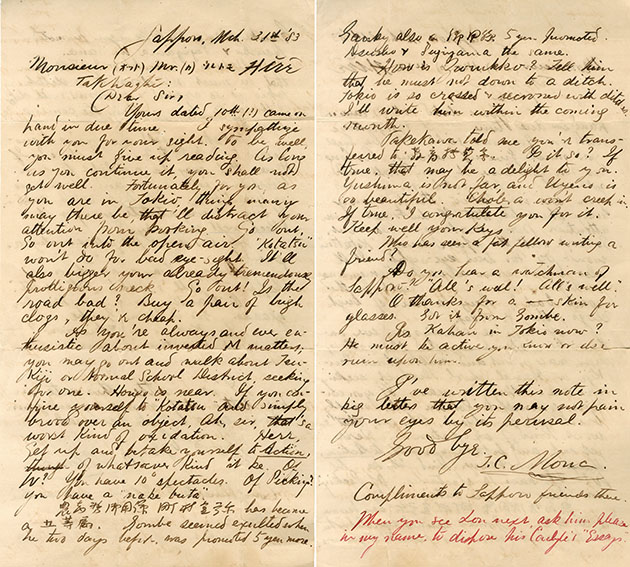 Sapporo, Mch. 31th '83
Monsieur Mr. Hire
Takahagi:
(Dear Sir)
Yours dated 10th came on
hand in due time. I sympathize
with you for your sight. To be well
you must give up reading. As long
as you continue it, you shall not
get well. Fortunately for you as
you are in Tokio, things many
may there be that'll distract your
attention from working. Go out.
Go out into the open air. "Kotatsu"
won't do for bad eye-sight. It'll
also bigger your already tremendous
cheek. Go out! Is the
road bad? Buy a pair of high
clogs, they're cheap.
As you're always and ever en-
thusiastic about inverted M matters,
you may go out and walk about Tsu-
Kiji or Normal School District, seeking
for one. Hongo is near. If you con-
fine yourself to Kotatsu and simply
brood over an object, Ah, sir, that's a
worst kind of oxidation. Herr,
Get up and betake yourself to Action,
of whatsoever kind it be. Of
W? You have 10 spectacles. Of Picking?
you have a "nage buta".
has become
a 五等属. Gombe seemed exulted when
he two days before was promoted 5 yen more.
Ganky also a 5 yen. Promoted
& Sugiyama the same.
How is ? Tell him
that he must not down to a ditch.
Tokio is so crossed & recrossed with ditches
I'll write him within the coming
month.
Takekawa told me you're trans-
ferred to Is it so? If
true, that may be a delight to you.
Yushima is not far, and Uyeno is
so beautiful. won't creep in.
If true, I congratulate you for it.
Keep well your Keys.
Who has seen a fat fellow writing a
friend?
Do you hear a watchman of
Sapporo? "All's well! All's well"
O thanks for a — skin for
glasses. Got it from Gombe.
Is Kahan in Tokio now?
He must be active you know or else
ruin upon him.
I've written this note in
big letters that you may not pain
your eyes by its perusal.
Good bye
I.C. Mona.
Compliments to Sapporo friends there.
When you see Lon next, ask him please
in my name, to dispose his Carlyle's "Essays".